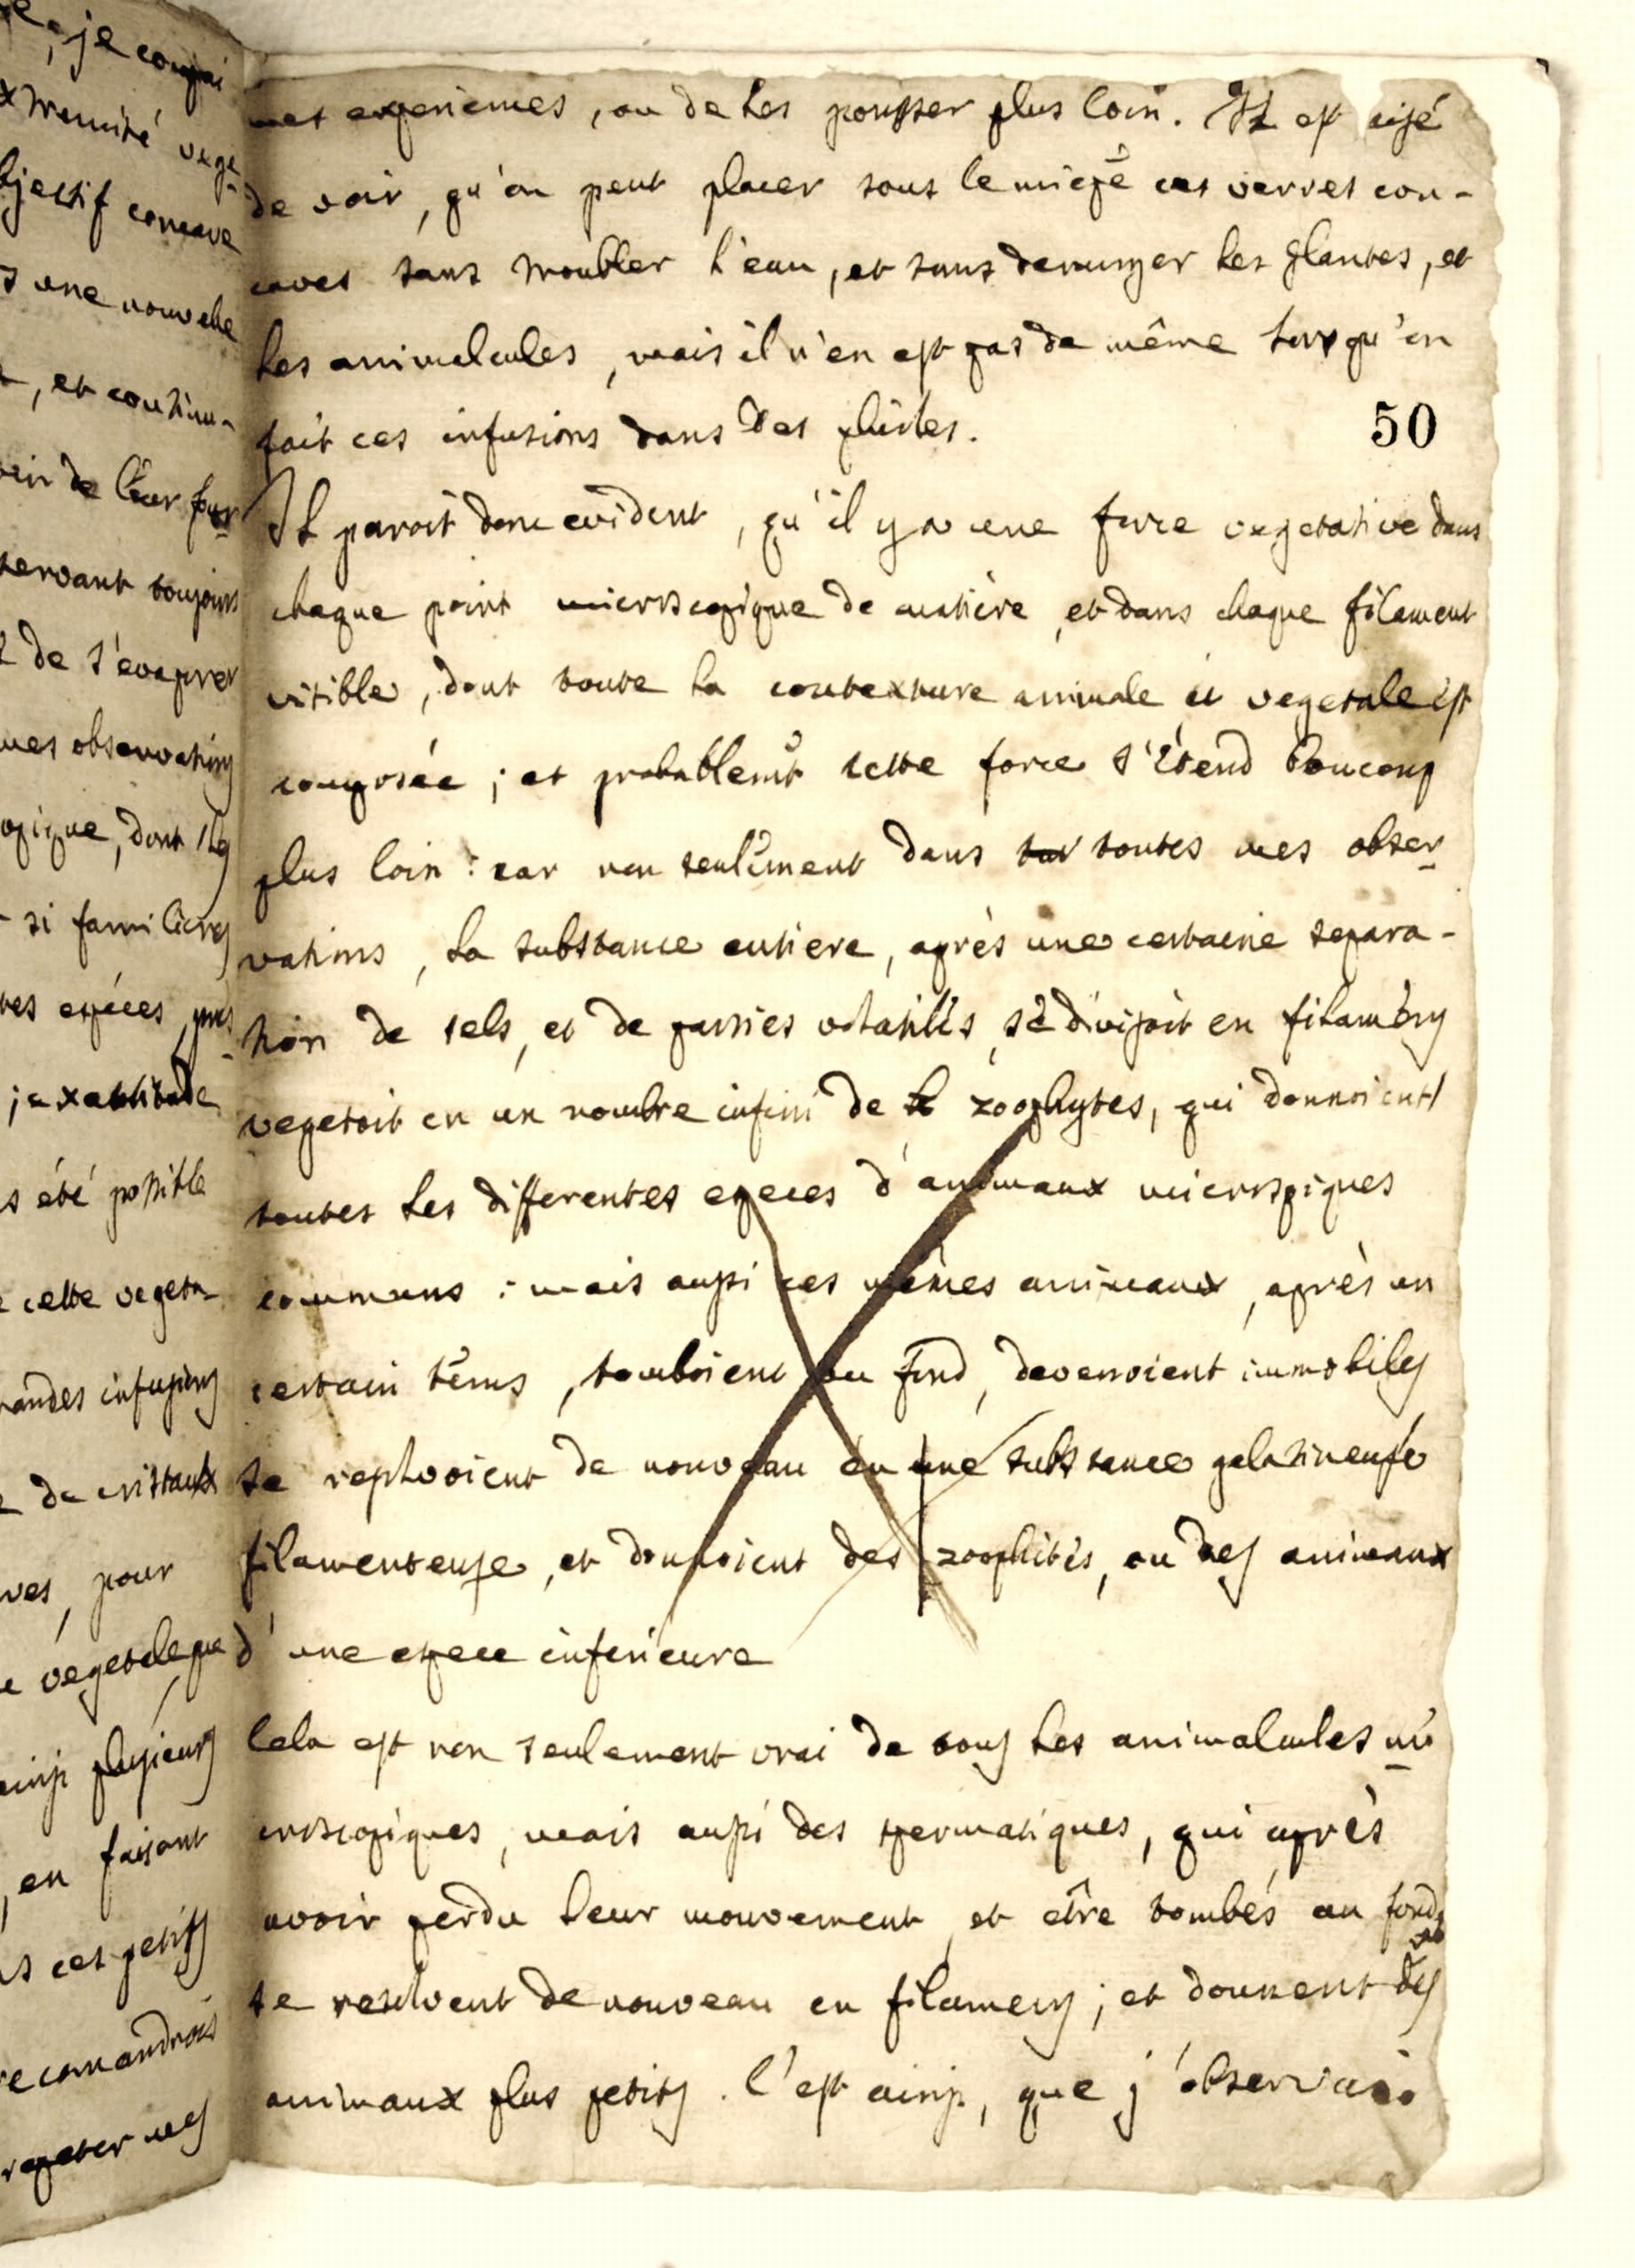 e, je coupai
xtremité vege-
bjectif concave
s une nouvelle
, et continu-
oin de leur four
servant toujours
t de s'evaporer
mes observations
opique, dont les
si familieres
tes espéces, pres-
; exactitude
s été possible
e cette vegeta-
randes infusions
e de cristaux
ves, pour
e végetale que
ainsi plusieurs
, en faisant
s ces petits
recomandrois
repeter mes
mes experiences, ou de les pousser plus loin. Il est aisé
de voir, qu'on peut placer sous le micpẽ ces verres con-
caves sans troubler l'eau, et sans deranger les plantes, et
les animalcules, mais il n'en est pas de même lorsqu'on
fait ces infusions dans des phioles.
50
Il paroit donc evident, qu'il y a une force vegetative dans
chaque point microscopique de matière, et dans chaque filament
visible, dont toute la contexture animale et vegetale est
composée ; et probablemt̃ cette force s'étend boucoup
plus loin : car non seulement dans tou toutes mes obser-
vations, la substance entiere, après une certaine separa-
tion de sels, et de parties volatiles, se divisoit en filamens
vegetoit en un nombre infini de zoophytes, qui donnoient
toutes les differentes especes d'animaux microscopiques
communs : mais aussi ces mêmes animaux, après un
certain tems, tomboient au fond, devenoient immobiles
se resolvoient de nouveau en une substance gelatineuse
filamenteuse, et donnoient des zoophites, ou des animaux
d'une espece inferieure
Cela est non seulement vrai de tous les animalcules mi-
croscopiques, mais aussi des spermatiques, qui après
avoir perdu leur mouvement, et être tombés au fond,
se resolvent de nouveau en filamens ; et donnent des
animaux plus petits. C'est ainsi, que j'observais